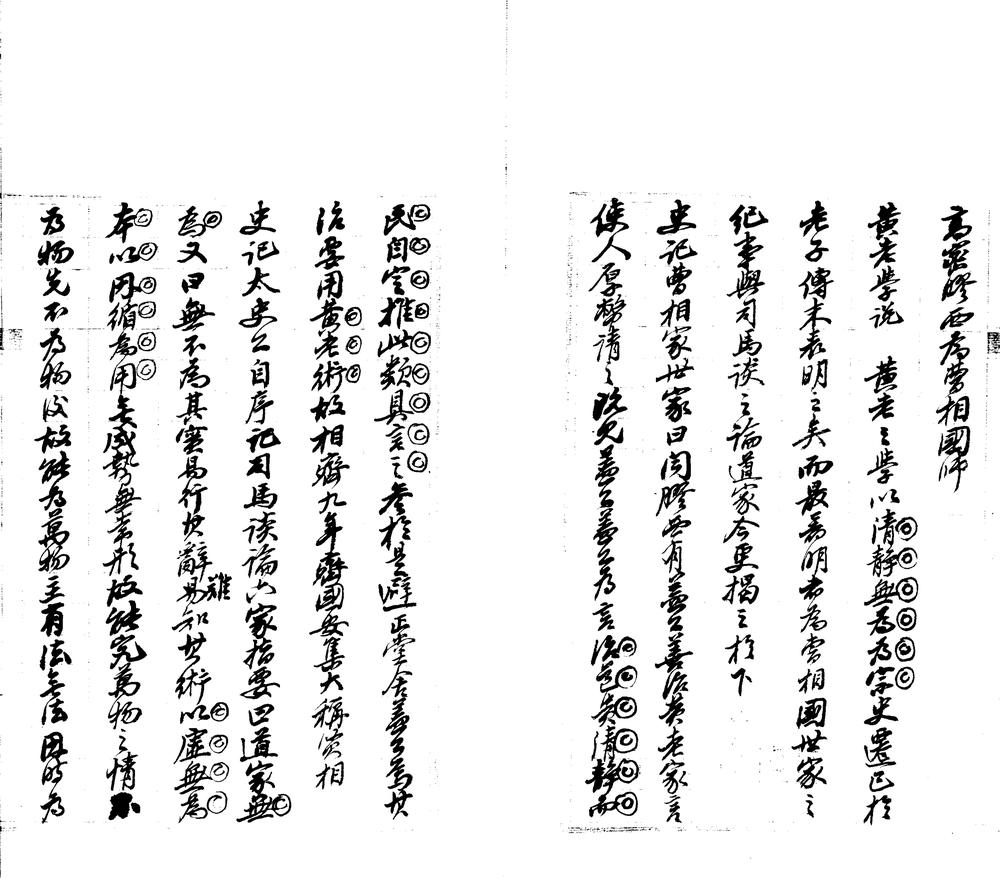 高密膠西為曹相國師
黃老學說　黃老之學以清靜無為為宗史遷已於
老子傳末表明之矣而最為明者為曹相國世家之
紀事與司馬談之論道家今更揭之於下
史記曹相家世家曰聞膠西有蓋公善治黃老家言
使人厚幣請之既見蓋公蓋公為言治道貴清靜而
民自定推此類具言之參於是避正堂舍蓋公焉其
治要用黃老術故相齊九年齊國安集大稱賢相
史記太史公自序記司馬談論六家指要曰道家無
為又曰無不為其實易行其辭難知其術以虛無為
本以因循為用無成勢無常形故能究萬物之情不
為物先不為物後故能為萬物主有法無法因時為